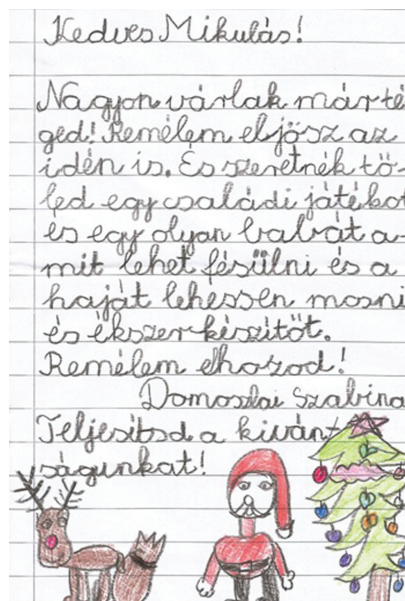 Kedves Mikulás!
Nagyon várlak már té-
ged! Remélem eljösz az
idén is. És szeretnék tő-
led egy családi játékot
és egy olyan babát a-
mit lehet fésülni és a
haját lehessen mosni
és ékszerkészítőt.
Remélem elhozod!
Domoszlai Szabina
Teljesítsd a kívánt
ságunkat!